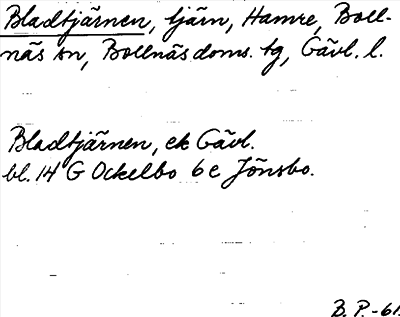 Bladtjärnen, tjärn, Hamre, Boll-
näs sn, Bollnäs doms. tg, Gävl. l.
Bladtjärnen, ek Gävl.
bl. 14 G Ockelbo 6 e Jönsbo.
B. P. -61.